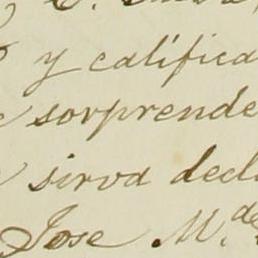 y califica
sorprende
sirva decl
Jose M. de